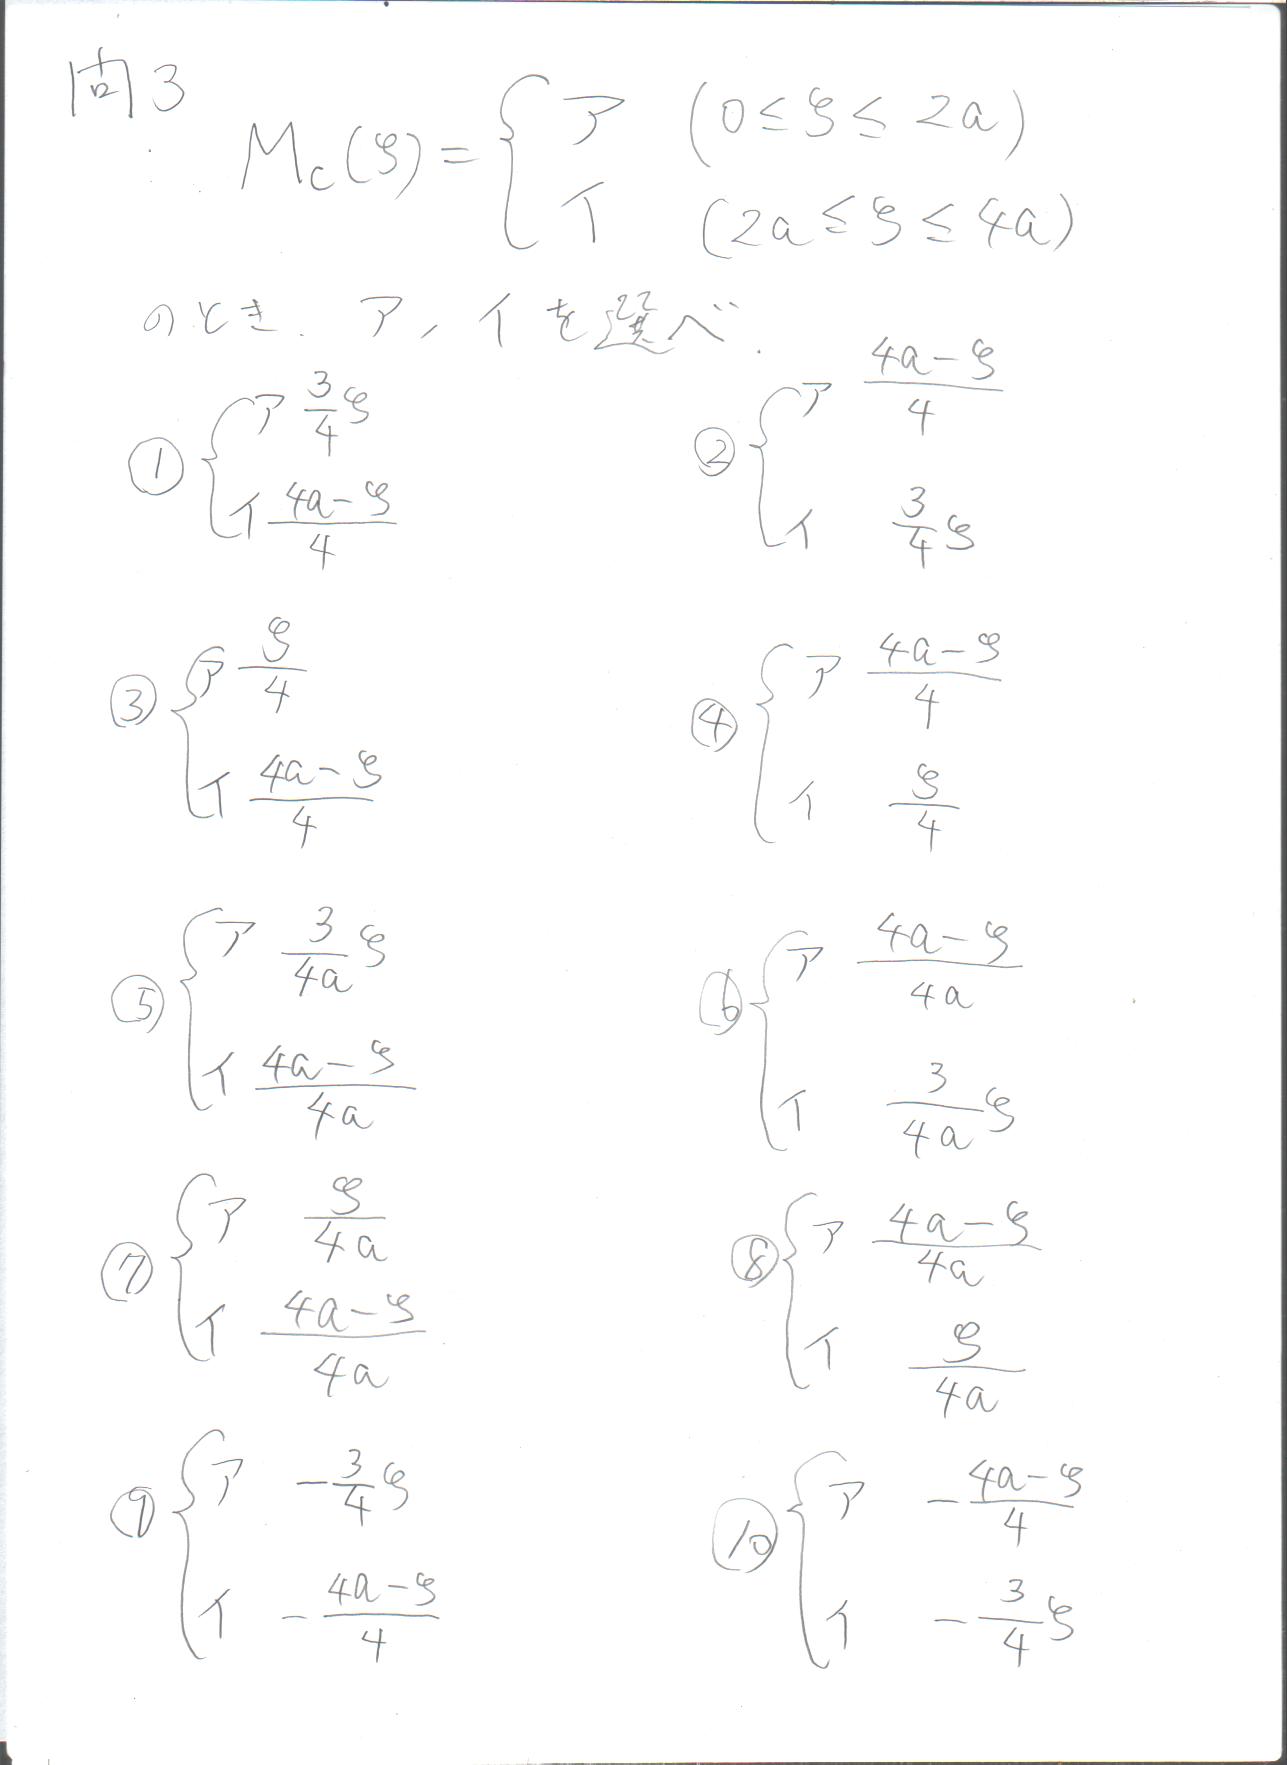 問3
Mc(ξ) = { ア (0 ≤ ξ ≤ 2a)
イ (2a ≤ ξ ≤ 4a)
のとき. ア, イを選べ.
① { ア 3/4 ξ
イ (4a-ξ)/4
② { ア (4a-ξ)/4
イ 3/4 ξ
③ { ア ξ/4
イ (4a-ξ)/4
④ { ア (4a-ξ)/4
イ ξ/4
⑤ { ア 3/4a ξ
イ (4a-ξ)/4a
⑥ { ア (4a-ξ)/4a
イ 3/4a ξ
⑦ { ア ξ/4a
イ (4a-ξ)/4a
⑧ { ア (4a-ξ)/4a
イ ξ/4a
⑨ { ア -3/4 ξ
イ -(4a-ξ)/4
⑩ { ア -(4a-ξ)/4
イ -3/4 ξ